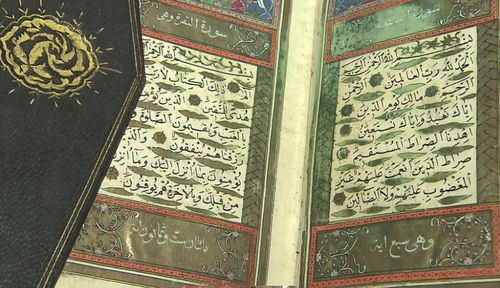 سورة البقرة وهي
بسم الله الرحمن الرحيم
الحمد لله رب العالمين الرحمن
الرحيم مالك يوم الدين
اياك نعبد واياك نستعين
اهدنا الصراط المستقيم
صراط الذين انعمت عليهم غير
المغضوب عليهم ولا الضالين
وهي سبع اية
بسم الله الرحمن الرحيم
ذلك الكتاب لا ريب
هدى للمتقين الذين يؤمنون
بالغيب ويقيمون الصلوة
ومما رزقناهم ينفقون والذين
يؤمنون بما انزل اليك وما انزل
من قبلك وبالاخرة هم يوقنون
مائتان وست وثمانون اية